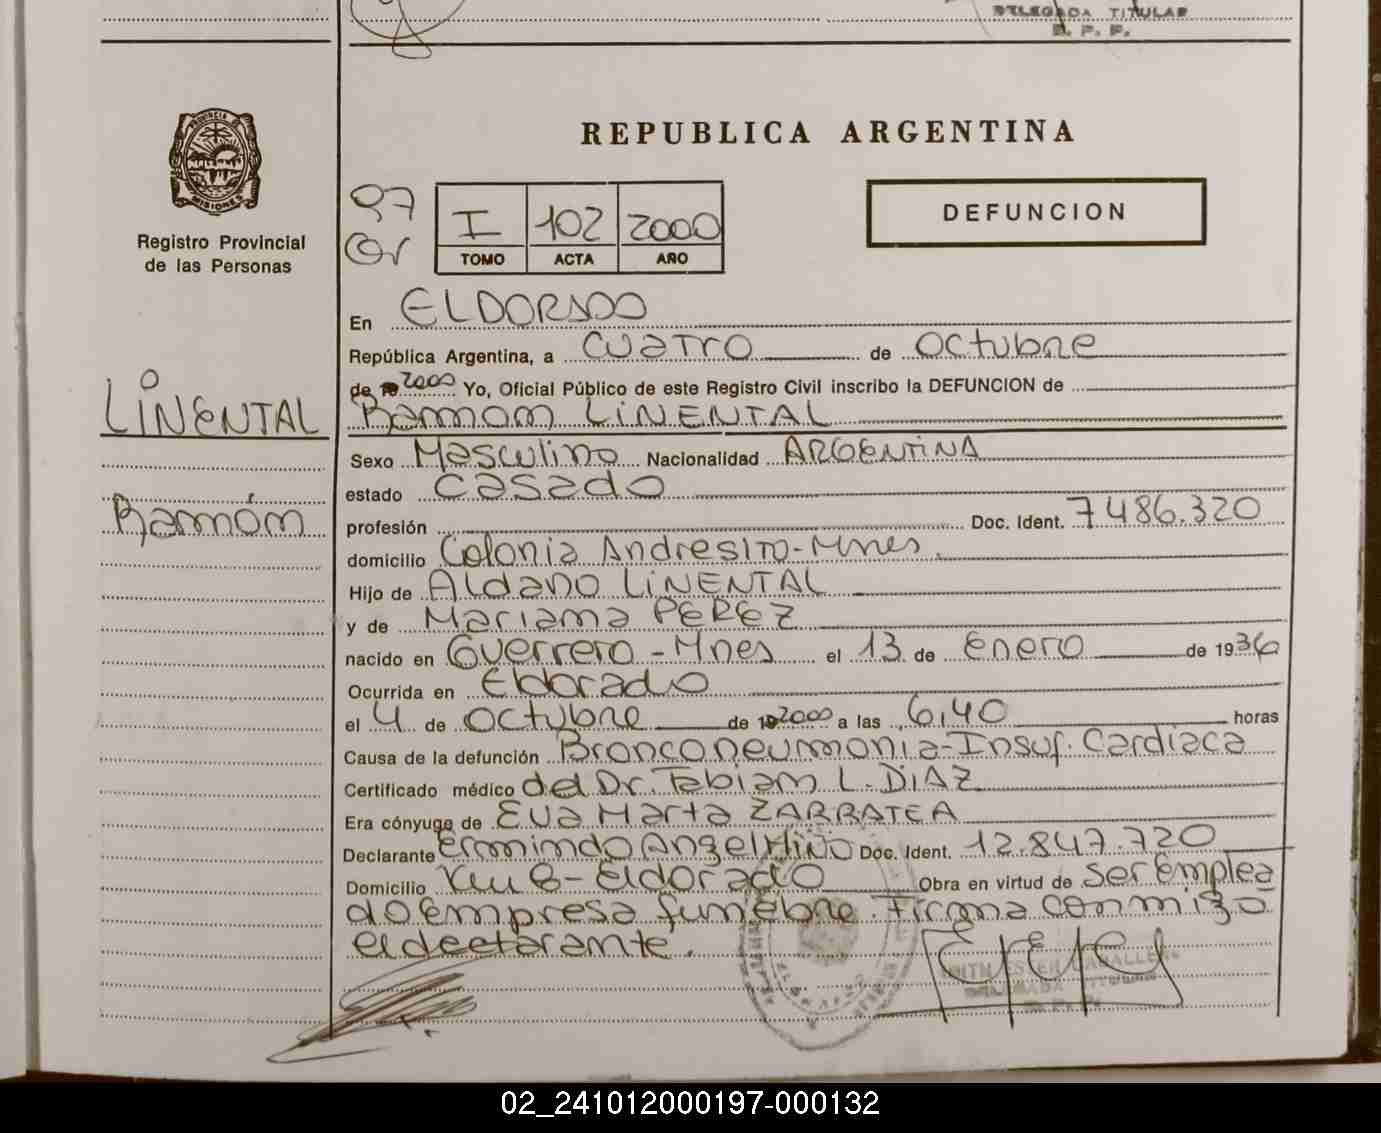 DELEGADA TITULAR
R. P. P.
PROVINCIA DE
MISIONES
Registro Provincial
de las Personas
REPUBLICA ARGENTINA
97
I 102 2000
TOMO ACTA AÑO
DEFUNCION
En ELDORADO
República Argentina, a CUATRO de Octubre
de 2000 Yo, Oficial Público de este Registro Civil inscribo la DEFUNCION de
LINENTAL
Ramom LINENTAL
Sexo Masculino Nacionalidad ARGENTINA
estado Casado
Ramóm
profesión Doc. Ident. 7486.320
domicilio Colonia Andresito-Mnes.
Hijo de Aldano LINENTAL
y de Mariana PEREZ
nacido en Guerrero - Mnes el 13 de Enero de 1936
Ocurrida en Eldorado
el 4 de Octubre de 2000 a las 6,40 horas
Causa de la defunción Bronconeumonia-Insuf. Cardiaca
Certificado médico del Dr. Fabiam L. DIAZ
Era cónyuge de Eva Marta ZARRATEA
Declarante Ermindo Angel Miño Doc. Ident. 12.847.720
Domicilio Km 8 - Eldorado Obra en virtud de ser emplea
do empresa funebre. Firma conmigo
el declarante.
DELEGADA TITULAR
02_241012000197-000132